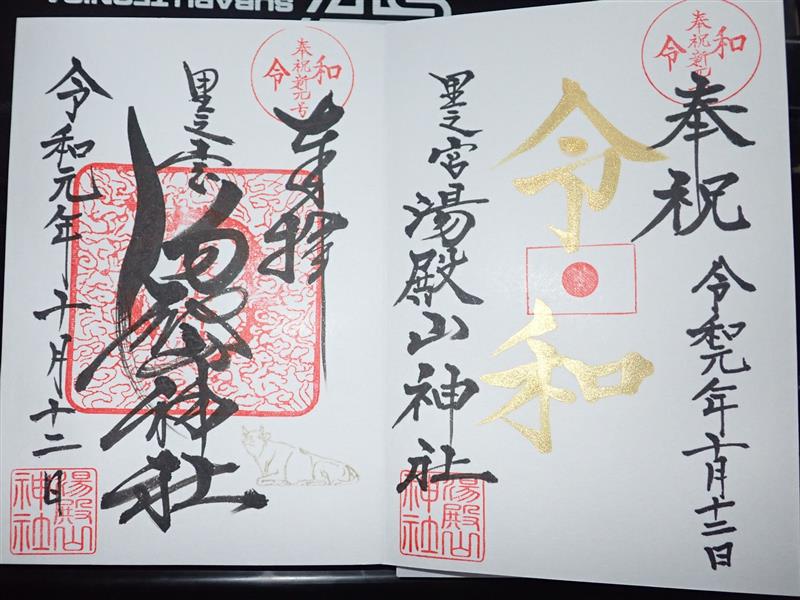 奉祝新元号
令和
奉拝
里之宮
湯殿山神社
令和元年十月十二日
湯殿山神社
奉祝新元
令和
奉祝
令和
里之宮湯殿山神社
令和元年十月十二日
湯殿山神社